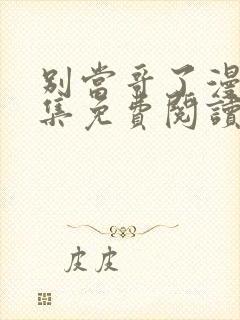 別當哥了漫
集免費閱讀
皮皮